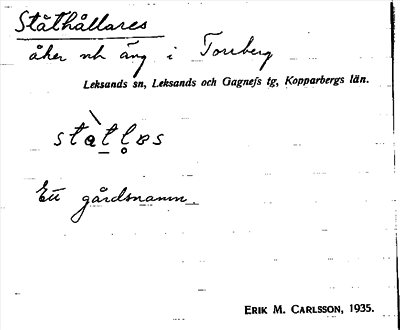 Ståthållares
åker och äng i Torrberg
Leksands sn, Leksands och Gagnefs tg, Kopparbergs län.
Ett gårdsnamn.
ERIK M. CARLSSON, 1935.